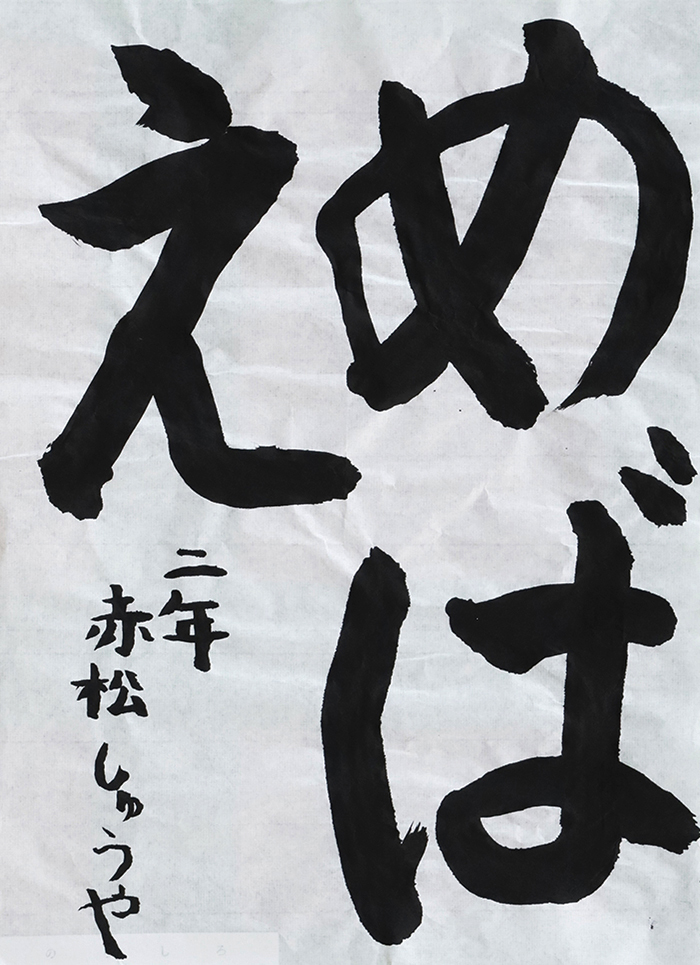 めば
え
二年
赤松しゅうや